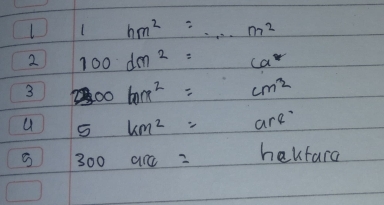 1 1 hm² = .... m²
2 100 dm² = ca
3 00 hm² = cm²
4 5 km² = are
5 300 are = hektara